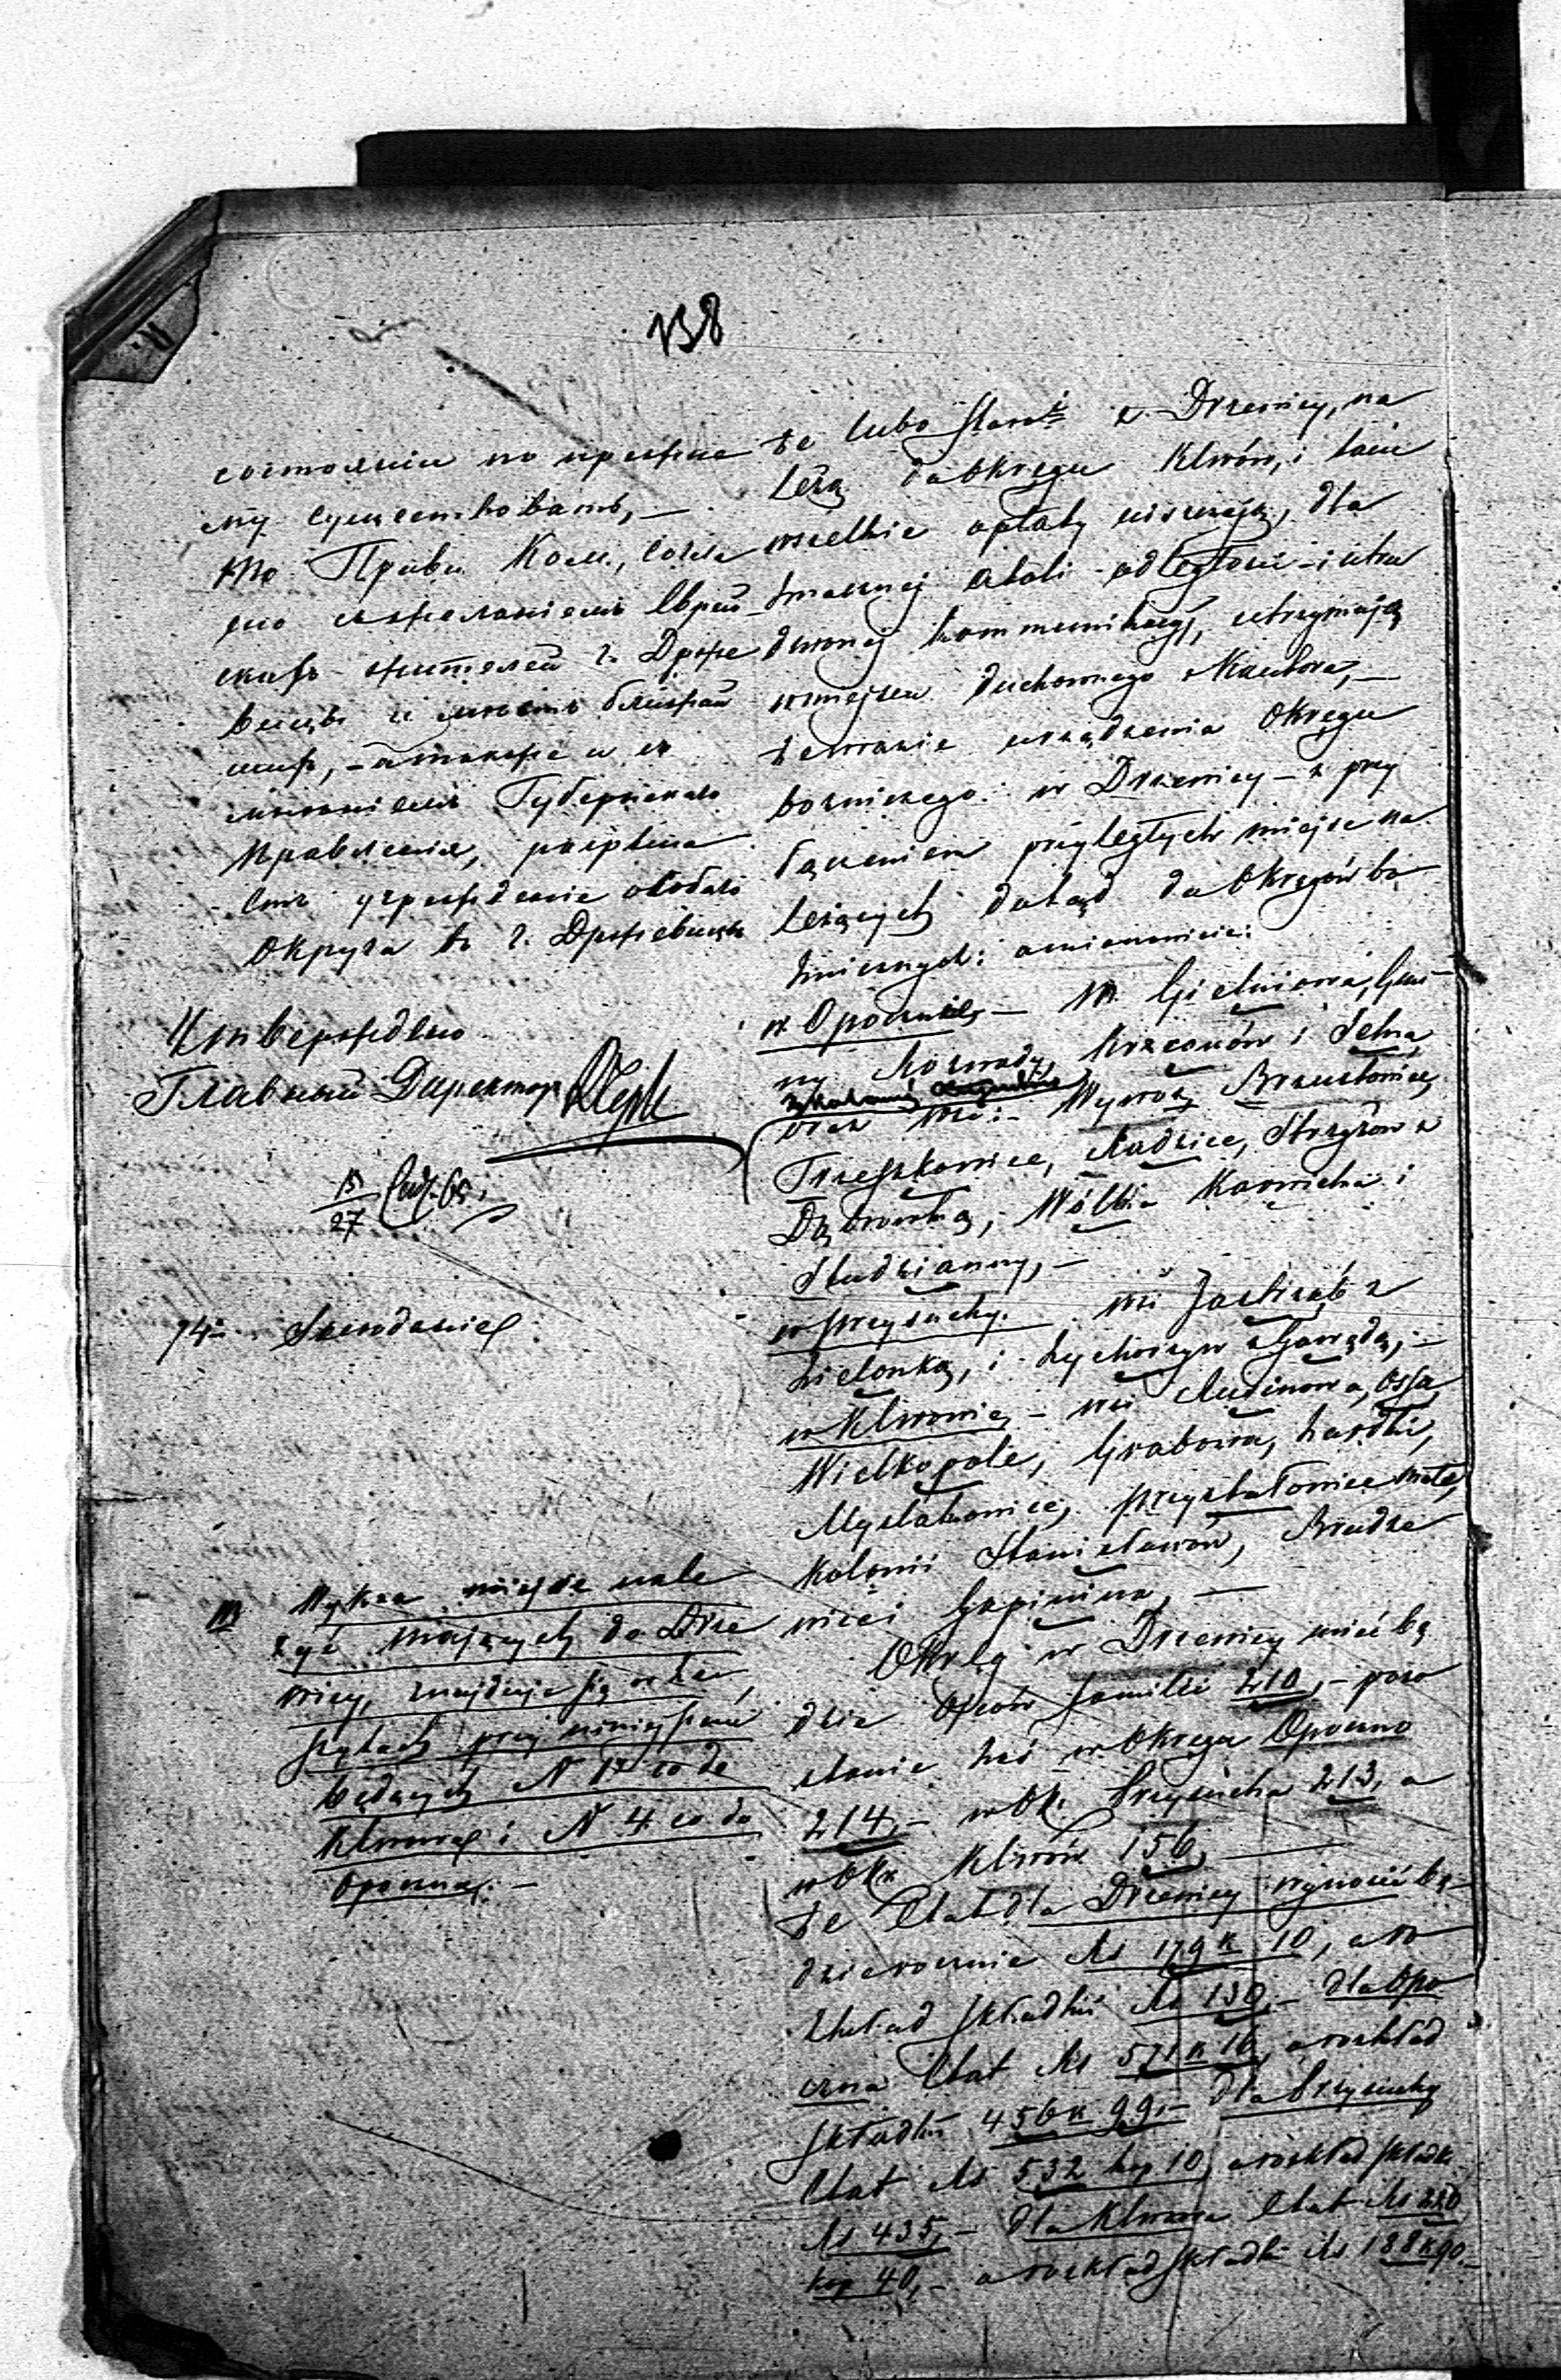 138
состоянии по прежне
му существовать, —
что Прав. Ком., согла
сно съ желаніемъ Еврей
скихъ жителей г. Држе
вицы и мѣстъ ближай
шихъ, – а также и съ
мнѣніемъ Губернскаго
Правленія, разрѣша
етъ учрежденіе особаго
Округа въ г. Држевицѣ
Утверждено
Главный Директор
15/27 65
74
Wykaz miejsc nale
żyć mających do Drze
wicy, znajduje się w ze
szytach przy niniejszem
będących N 17 co do
Klwowa i N 4 co do
Opoczna. —
że lubo Starzy z Drzewicy, na
leżą do Okręgu Klwów, i tam
wszelkie opłaty uiszczają, dla
znacznej atoli odległości i utru
dnionej kommunikacyi, utrzymują
w miejscu duchownego Kantora, —
że w razie urządzenia Okręgu
bożniczego w Drzewicy – z przy
łączeniem przyległych miejsc na
leżących dotąd do Okręgów bó
żniczych: a mianowicie:
w Opocznie — M. Gielniowa, Gmi
ny Rozwady, Krzczonów i
oraz wsi: Wywóz, Brzustowiec,
Trzeszkowice, Radzice, Strzyżów z
Dąbrówką, Wólka Karwicka i
Studzianny, —
w Przysuchy. wsi Jastrząb z
Zielonką, i Zychorzyn z Gawędą, —
w Klwowie, – wsi Rusinowa, Ossa,
Wielkopole, Grabowa, Zardki,
Myslakowice, Przystałowice małe,
Kolonii Stanisławów, Brudze
wice i Gapinina, —
Okręg w Drzewicy mieć bę
dzie Ojców familii 210, – pozo
stanie zaś w Okręgu Opoczno
214, – w Ok. Przysucha 213, a
w Okr. Klwów 156, —
że Etat dla Drzewicy wynosić bę
dzie rocznie Rs 179 k 10, a ro
zkład składki Rs 130, – dla Opo
czna Etat Rs 571 k 16, a rozkład
składki 456 k 99, – dla Przysuchy
Etat Rs 532 kop 10, a rozkład składki
Rs 435, – dla Klwowa Etat Rs 220
kop 40, – a rozkład składki Rs 188 k 90. –